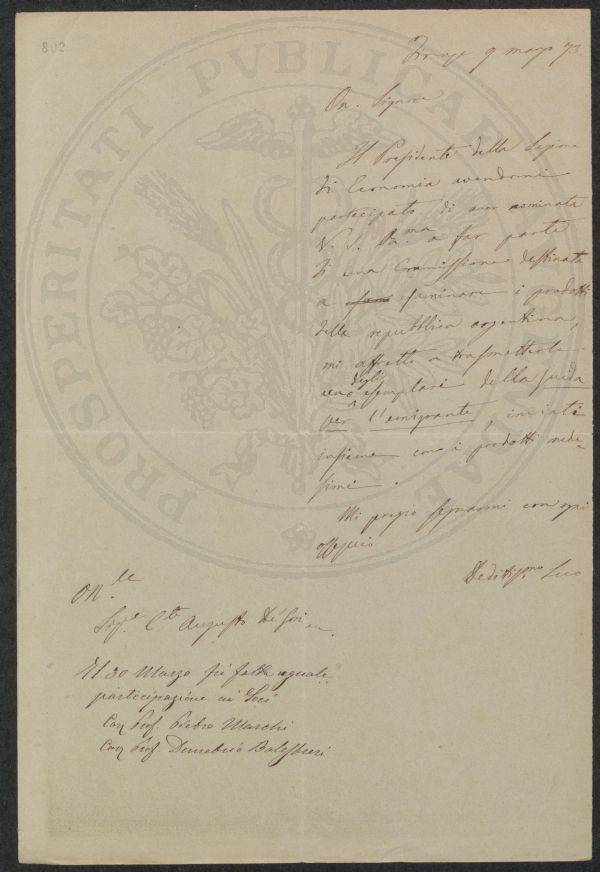 802
PROSPERITATI PVBLICAE
Firenze 9 marzo 73.
On. Signore
Il Presidente della Sezione
di Economia avendomi
partecipato di aver nominata
V. S. On.ma a far parte
di una Commissione destinata
a esaminare i prodotti
della repubblica argentina,
mi affretto a trasmetterle
uno degli esemplari della guida
per l'emigrante, inviati
insieme con i prodotti mede-
simi.
Mi pregio segnarmi con ogni
ossequio
Dedittiss.mo Suo
On.le
Sig.e C.te Augusto De' Gori
Il 30 Marzo fu fatta uguale
participazione ai Soci
Cav Prof. Pietro Marchi
Cav Prof. Demetrio Balestreri